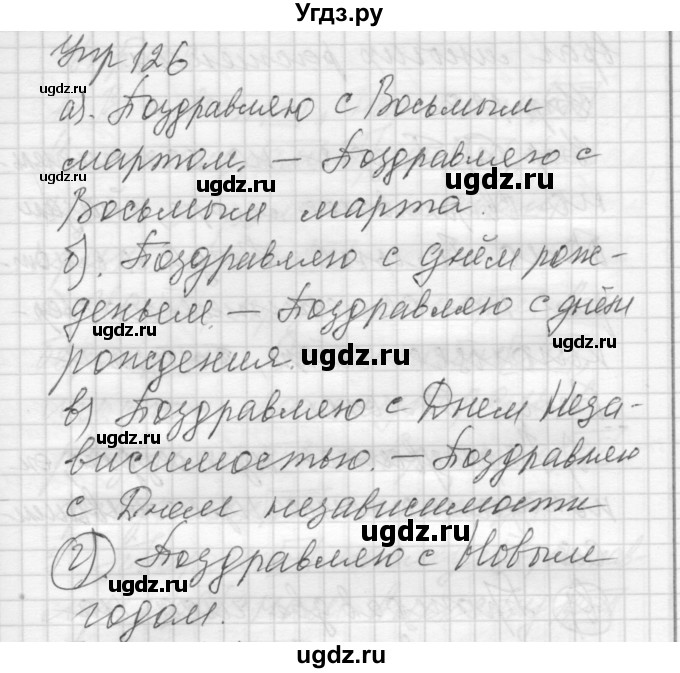 Угдз.ру
Упр 126
а). Поздравляю с Восьмым
мартом. — Поздравляю с
Восьмым марта.
б). Поздравляю с днём рож-
деньем. — Поздравляю с днём
рождения.
в) Поздравляю с Днем Неза-
висимостью. — Поздравляю
с Днем независимости
г). Поздравляю с Новым
годом.
ugdz.ru
ugdz.ru
ugdz.ru
ugdz.ru
ugdz.ru
ugdz.ru
ugdz.ru
ugdz.ru
ugdz.ru
ugdz.ru
ugdz.ru
ugdz.ru
ugdz.ru
ugdz.ru